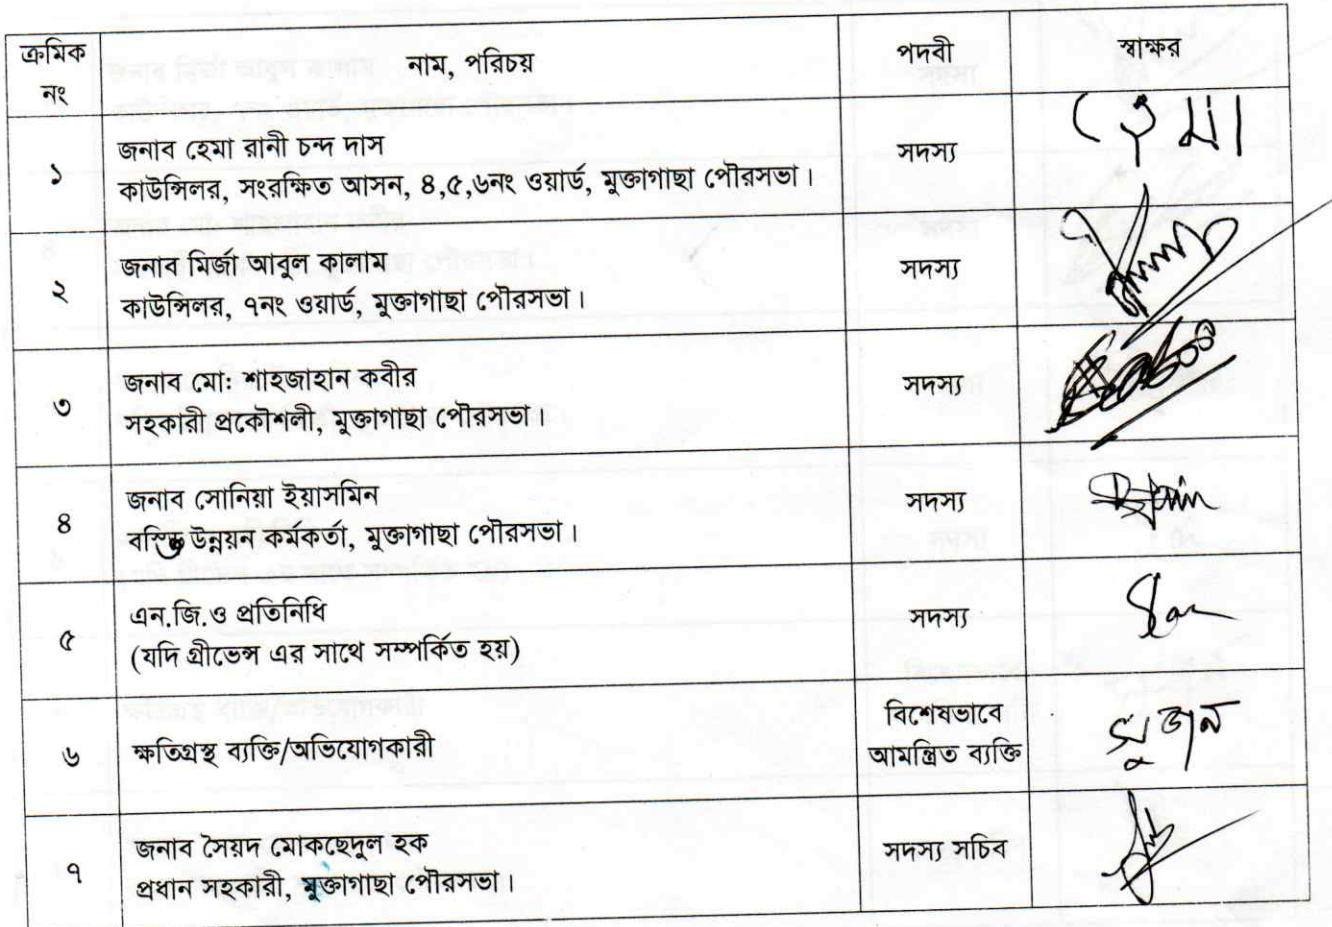 ক্রমিক নং	নাম, পরিচয়	পদবী	স্বাক্ষর
১	জনাব হেমা রানী চন্দ দাস
কাউন্সিলর, সংরক্ষিত আসন, ৪,৫,৬নং ওয়ার্ড, মুক্তাগাছা পৌরসভা।	সদস্য	হেমা
২	জনাব মির্জা আবুল কালাম
কাউন্সিলর, ৭নং ওয়ার্ড, মুক্তাগাছা পৌরসভা।	সদস্য
৩	জনাব মো: শাহজাহান কবীর
সহকারী প্রকৌশলী, মুক্তাগাছা পৌরসভা।	সদস্য
৪	জনাব সোনিয়া ইয়াসমিন
উন্নয়ন কর্মকর্তা, মুক্তাগাছা পৌরসভা।	সদস্য
৫	এন.জি.ও প্রতিনিধি
(যদি গ্রীভেন্স এর সাথে সম্পর্কিত হয়)	সদস্য
৬	ক্ষতিগ্রস্থ ব্যক্তি/অভিযোগকারী	বিশেষভাবে
আমন্ত্রিত ব্যক্তি
৭	জনাব সৈয়দ মোকছেদুল হক
প্রধান সহকারী, মুক্তাগাছা পৌরসভা।	সদস্য সচিব